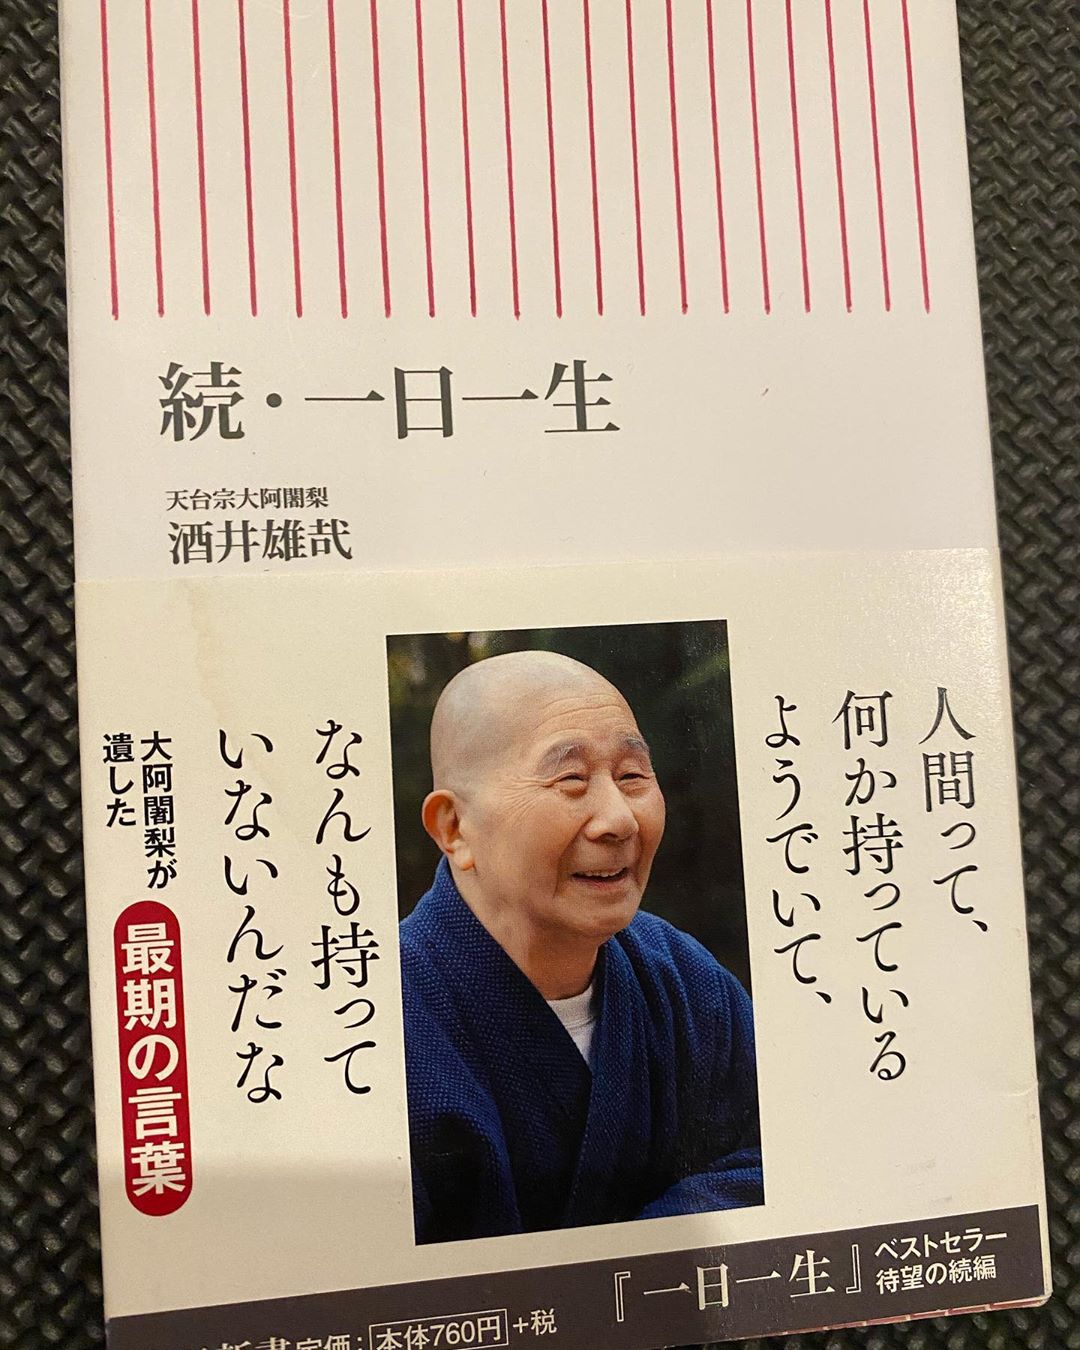 続・一日一生
天台宗大阿闍梨
酒井雄哉
人間って、
何か持っている
ようでいて、
なんも持って
いないんだな
大阿闍梨が
遺した
最期の言葉
『一日一生』
ベストセラー
待望の続編
新書定価：本体760円+税